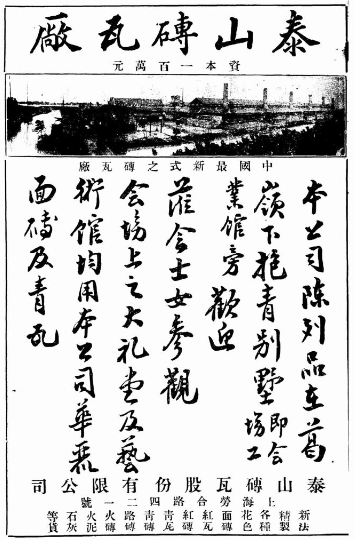 泰山磚瓦廠
資本一百萬元
中國最新式之磚瓦廠
本公司陳列品在葛
嶺下抱青別墅即會場工
業館旁歡迎
蒞会士女參觀
会塲上之大礼堂及藝
術館均用本公司華麗
面磚及青瓦
泰山磚瓦股份有限公司
上海勞合路四二一號
新法精製各種花色面磚紅瓦紅磚青瓦青磚路磚火磚火泥石灰等貨